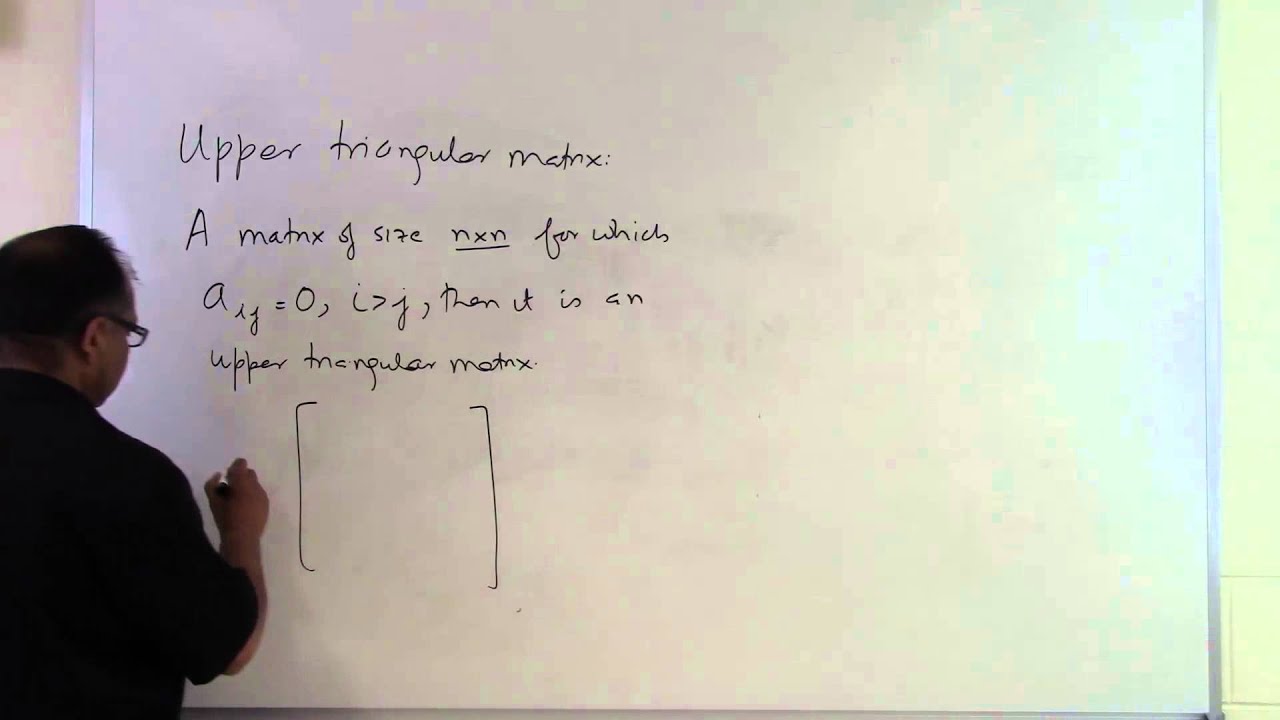 Upper triangular matrix:
A matrix of size nxn for which
a_ij = 0, i>j, then it is an
upper triangular matrix.